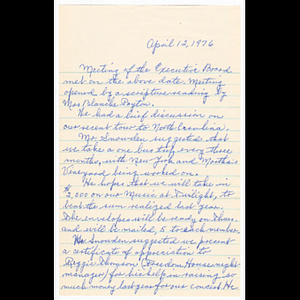 April 12, 1976
Meeting of the Executive Board
met on the above date. Meeting
opened by a scripture reading by
Mrs. Blanche Payton.
We had a brief discussion on
our recent tour to North Carolina.
Mr. Snowden suggested that
we take a one bus trip every three
months, with New York and Martha's
Vineyard being worked on.
We hopes that we will take in
$2,000 on our Musical Twilight, to
beat the sum realized last year.
The envelopes will be ready on Thurs.
and will be mailed, 5 to each member.
Mr. Snowden suggested we present
a certificate of appreciation to
Reggie Thompson (Freedom House weight
manager) for his help in raising so
much money last year for our concert. He